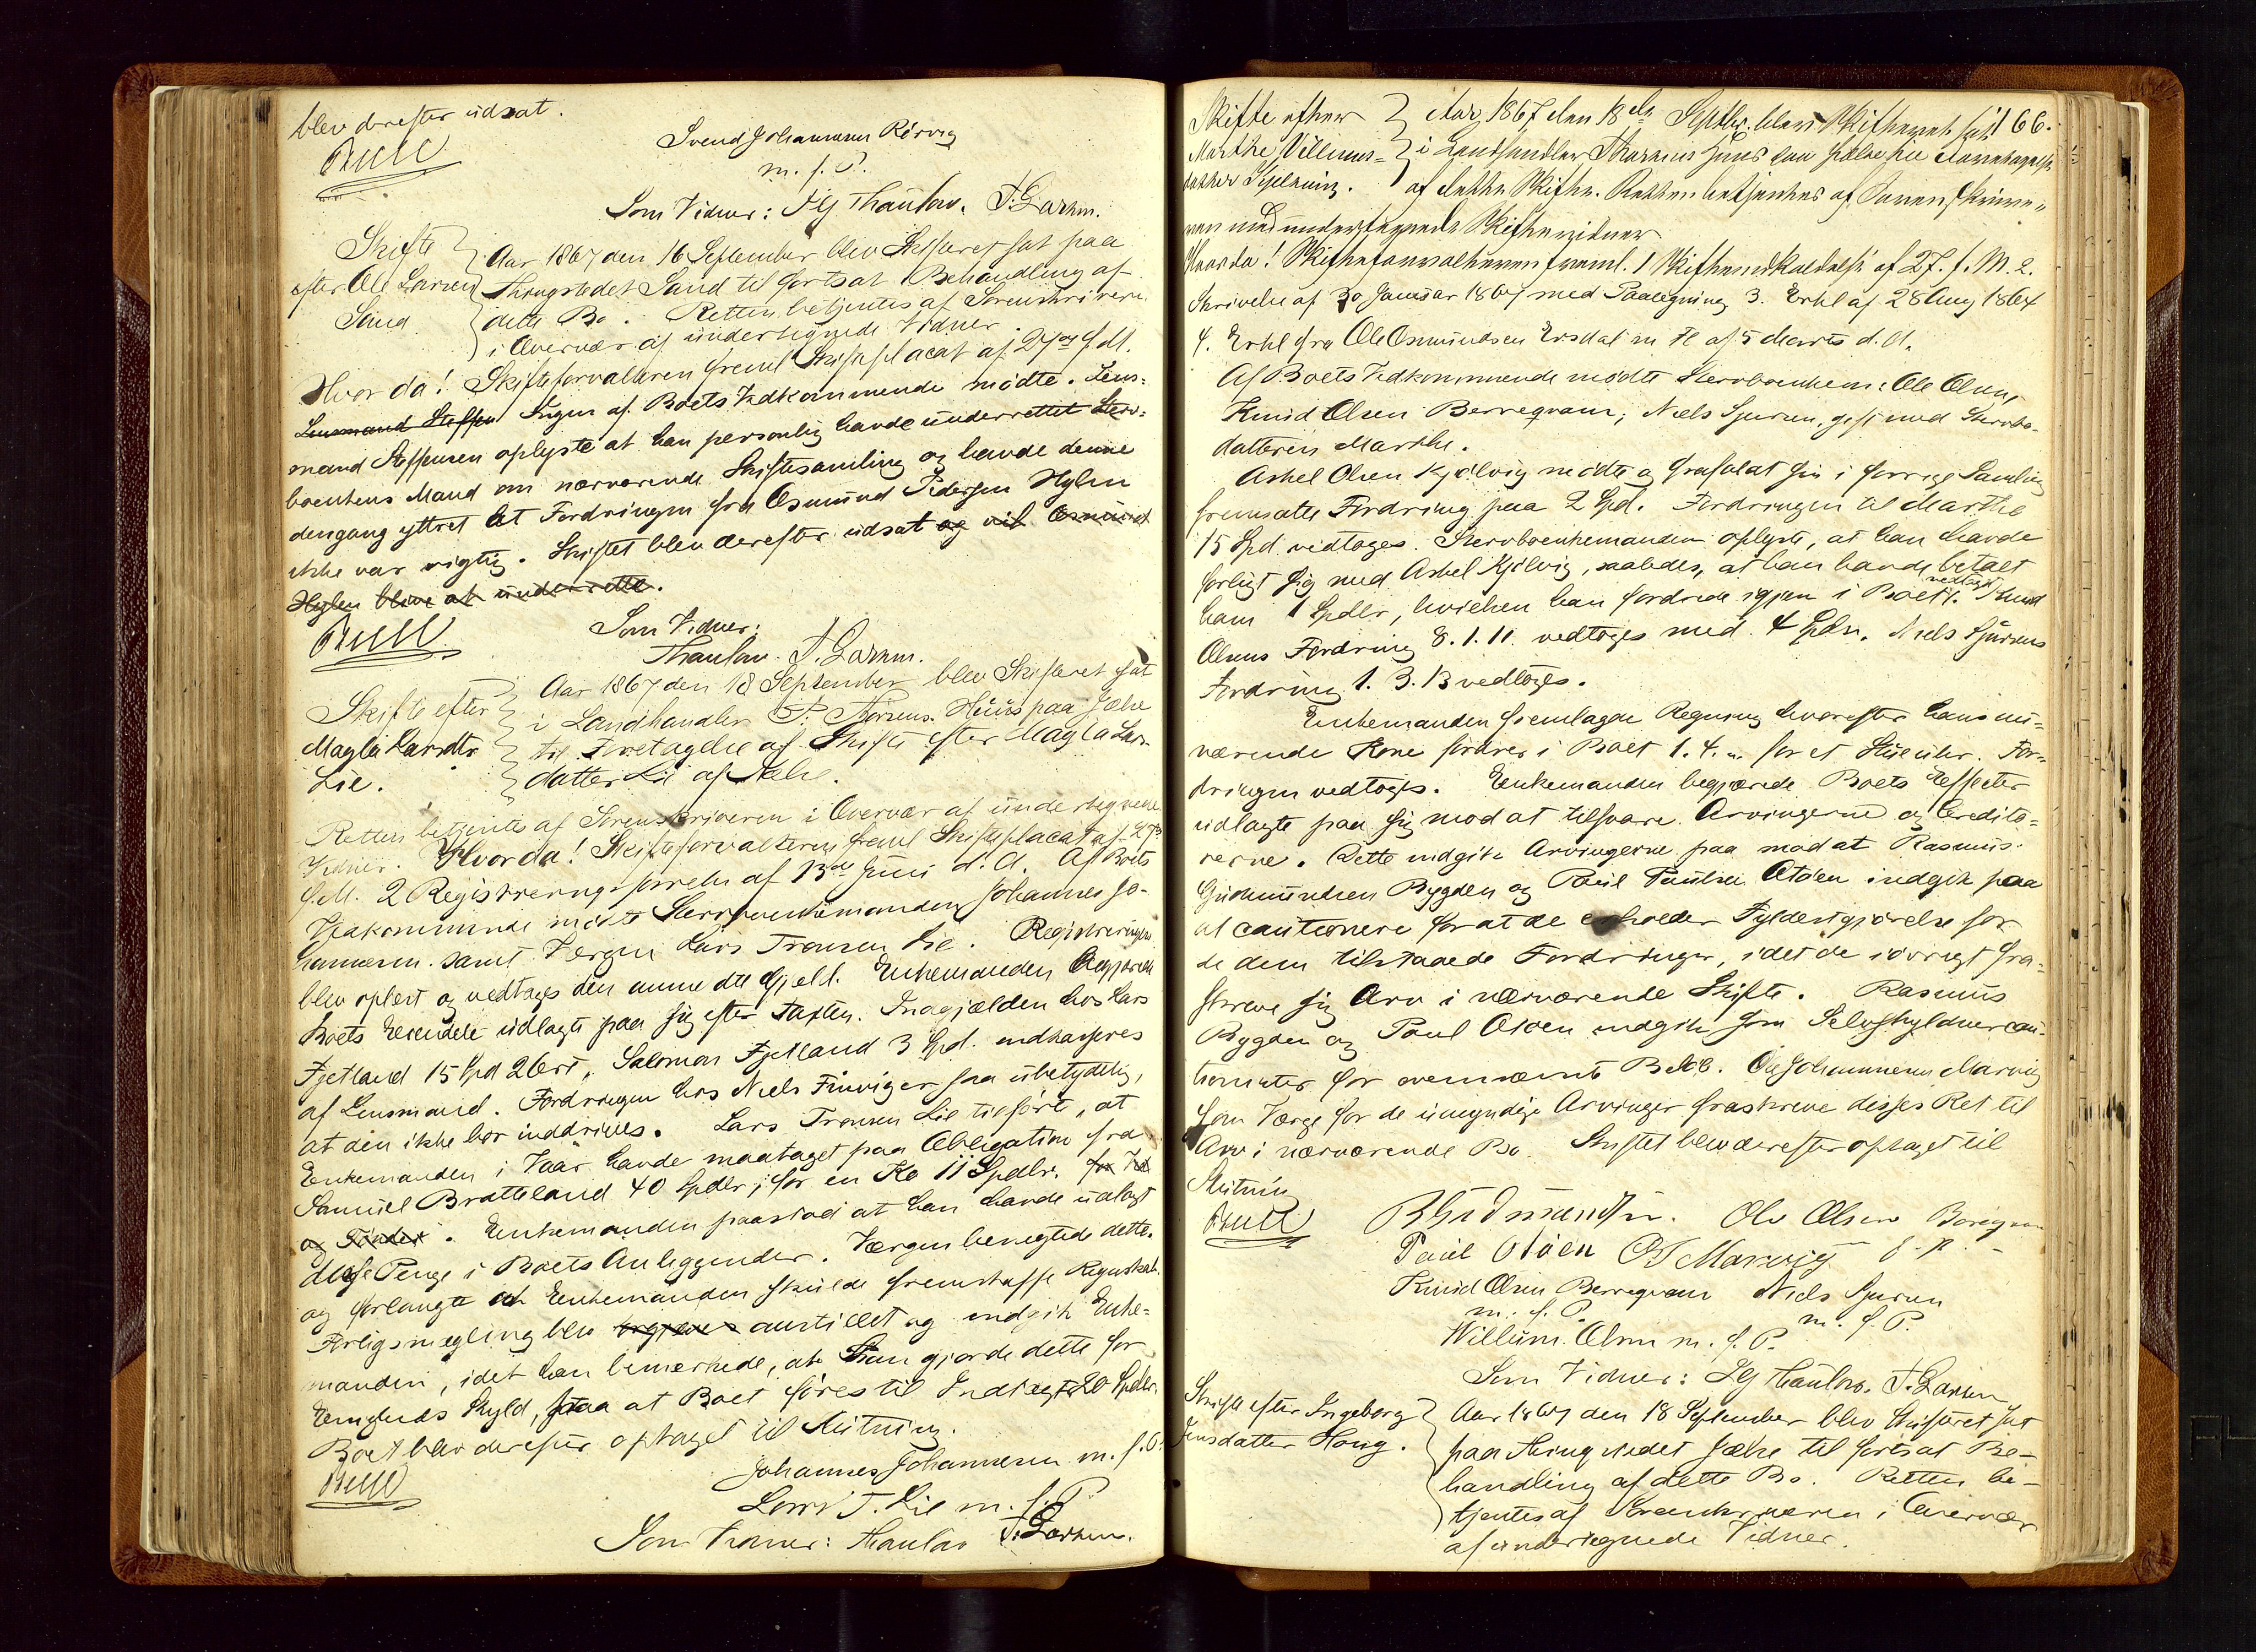 blev derefter udsat.
Svend Johannesen Rørvig
m. f. P.
Som Vidner: Thaulow. T. Larsen.
Skifte
efter Ole Larsen
Sand
Aar 1867 den 16 September blev Skifteret sat paa
Thingstedet Sand til fortsat Behandling af
dette Bo. Retten betjentes af Sorenskriveren
i Overvær af undertegnede Vidner.
Hvorda! Skifteforvalteren freml Skifteplacat af 27 f. M.
Lensmand Steffen Ingen af Boets Vedkommende mødte. Lens-
mand Steffensen oplyste at han personlig havde underrettet Sterv-
boenkens Mand om nærværende Skiftesamling og havde denne
dengang yttret at Fordringen fra Osmund Pedersen Hylen
ikke var rigtig. Skiftet blev derefter udsat og vil Osmund
Hylen blive at underrette.
Som Vidner:
Thaulow. T. Larsen.
Skifte efter
Magla Larsdtr
Lie.
Aar 1867 den 18 September blev Skifteret sat
i Landhandler Huus paa Jelse
til Foretagelse af Skifte efter Magla Lars-
datter Lie af Jelse.
Retten betjentes af Sorenskriveren i Overvær af undertegnede
Vidner. Hvorda! Skifteforvalteren freml Skifteplacat af 27
f. M. 2 Registreringsforretn af 13de Juni d. A. Af Boets
Vedkommende mødte Stervboenkemanden Johannes Jo-
hannesen samt Værgen Lars Tronsen Lie. Registreringen
blev oplæst og vedtoges den anmeldte Gjæld. Enkemanden begjærede
Boets Eiendele udlagte paa sig efter Taxten. Indgjælden hos Lars
Fjetland 15 Spd 2 Ort, Salomon Fjetland 3 Spd. indkasseres
af Lensmand. Fordringen hos Niels Finviger saa ubetydelig,
at den ikke bør inddrives. Lars Tronsen Lie tilførte, at
Enkemanden i Vaar havde modtaget paa Obligation fra
Samuel Bratteland 40 Spdlr, for en Ko 11 Spdlr. for
og Tønder. Enkemanden paastod at han havde udlagt
disse Penge i Boets Anliggender. Værgen benegtede dette
og forlangte at Enkemanden skulde fremskaffe Regnskab.
Forligsmægling blev anstillet og indgik Enke-
manden, idet han bemærkede, at han gjorde dette for
Venskabs Skyld, paa at Boet føres til Indtægt 20 Spdlr.
Boet blev derefter optaget til Slutning.
Johannes Johannesen m. f. P.
Lars T. Lie m. f. P.
Som Vidner: Thaulow T. Larsen.
166.
Skifte efter
Marthe Villums-
datter
Aar 1867 den 18de Septbr. blev Skifteret sat
i Landhandler Huus paa Jelse til Foretagelse
af dette Skifte. Retten betjentes af Sorenskrive-
ren med undertegnede Skiftevidner
Hvorda! Skifteforvalteren freml. 1 Skifteindkaldelse af 27. f. M. 2.
Skrivelse af 30 Januar 1867 med Paategning 3. Erkl af 28 Aug 1864
4. Erkl fra Ole Osmundsen Ersdal m fl af 5 Marts d. A.
Af Boets Vedkommende mødte Stervboenkem: Ole Olsen,
Knud Olsen Berreqvam, Niels Sjursen, gift med Stervbo-
datteren Marthe.
Askel Olsen Kjølvig mødte og frafaldt sin i forrige Samling
fremsatte Fordring paa 2 Spd. Fordringen til Marthe
15 Spd vedtoges. Stervboenkemanden oplyste, at han havde
forligt sig med Askel Kjølvig, saaledes, at han havde betalt
ham 1 Spdlr, hvilken han fordrede igjen i Boet. vedtoges Knud
Olsens Fordring 8. 1. 11. vedtoges med 4 Spdlr. Niels Sjursens
Fordring 1. 3. 13 vedtoges.
Enkemanden fremlagde Regning hvorefter hans nu-
værende Kone fordrer i Boet 1. 4. „ for et Stueuhr. For-
dringen vedtoges. Enkemanden begjærede Boets Effecter
udlagte paa sig mod at tilsvare Arvingerne og Credito-
rerne. Dette indgik Arvingerne paa mod at Rasmus
Gudmundsen Bygden og Poul Paulsen Otøen indgik paa
at cautionere for at de erholder Fyldestgjørelse for
de dem tilstaaede Fordringer, idet de iøvrigt fra-
skrev sig Arv i nærværende Skifte. Rasmus
Bygden og Poul Otøen indgik som Selvskyldnercau-
tionister for ovennævnte Beløb. Johannesen Marvig
som Værge for de umyndige Arvinger fraskrev disses Ret til
Arv i nærværende Bo. Skiftet blev derefter optaget til
Slutning
R Gudmundsen. Ole Olsen
Paul Otöen Marvig
Knud Olsen Berreqvam Niels Sjursen
m. f. P. m. f. P.
Willum Olsen m. f. P.
Som Vidner: Thaulow. T. Larsen
Skifte efter Ingeborg
Jensdatter Houg.
Aar 1867 den 18 September blev Skifteret sat
paa Thingstedet Jælse til fortsat Be-
handling af dette Bo. Retten be-
tjentes af Sorenskriveren i Overvær
af undertegnede Vidner.